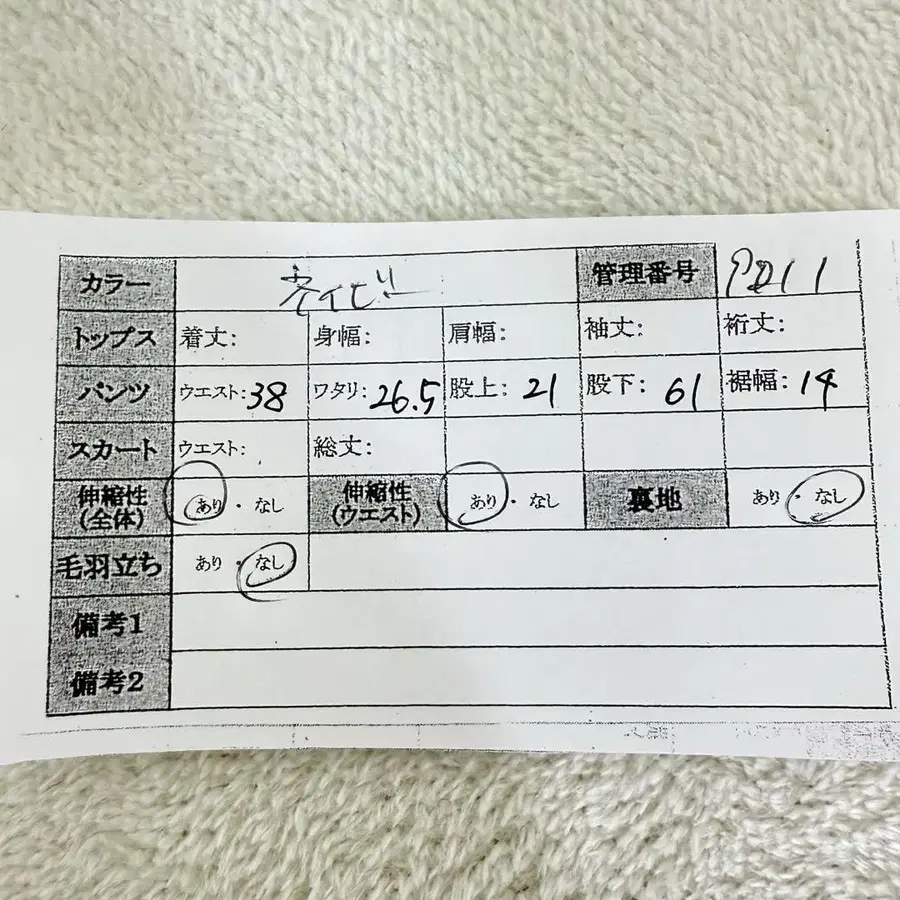 カラー ネイビー 管理番号
トップス 着丈: 身幅: 肩幅: 袖丈: 裄丈:
パンツ ウエスト:38 ワタリ:26.5 股上:21 股下:61 裾幅:14
スカート ウエスト: 総丈:
伸縮性(全体) あり・なし 伸縮性(ウエスト) あり・なし 裏地 あり・なし
毛羽立ち あり・なし
備考1
備考2